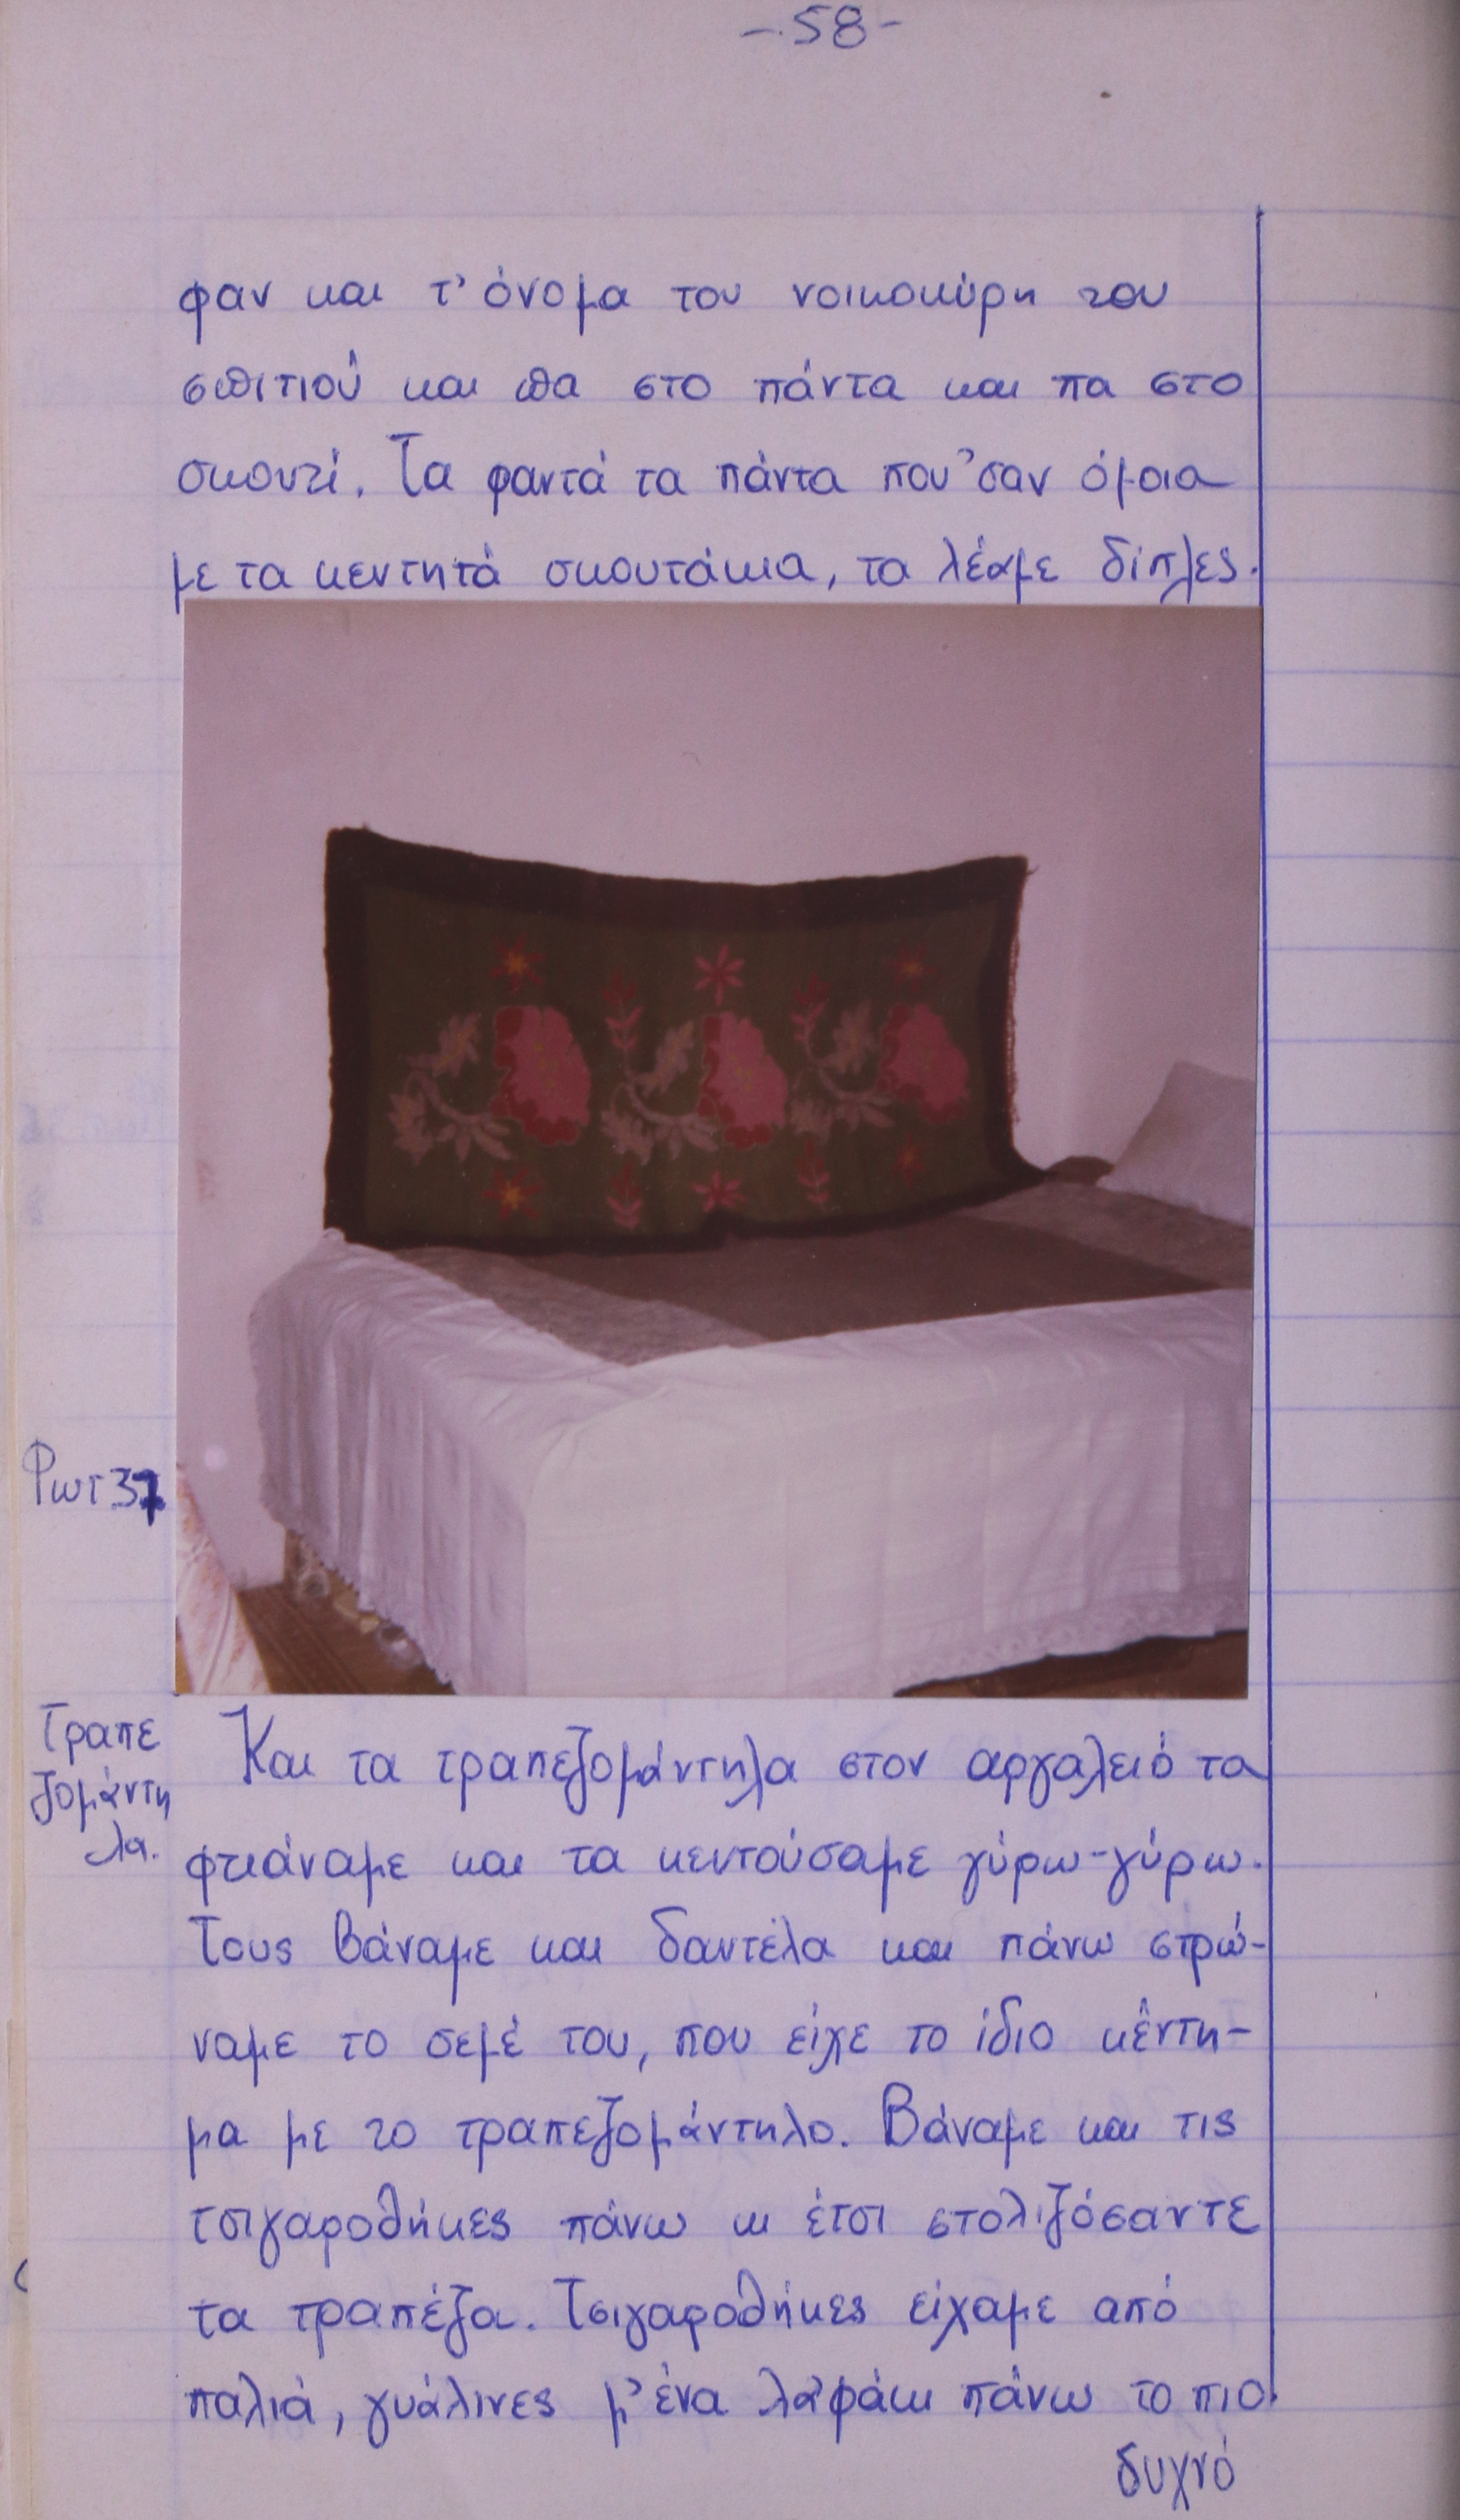 -58-
φαν και τ' όνομα του νοικοκύρη του
σπιτιού και πα στο πάντα και πα στο
σκουτί. Τα φαντά τα πάντα που 'σαν όμοια
με τα κεντητά σκουτάκια, τα λέαμε δίπλες.
Φωτ 37
Τραπε
ζομάντη
λα.
Και τα τραπεζομάντηλα στον αργαλειό τα
φτιάναμε και τα κεντούσαμε γύρω-γύρω.
Τους βάναμε και δαντέλα και πάνω στρώ-
ναμε το σεμέ του, που είχε το ίδιο κέντη-
μα με το τραπεζομάντηλο. Βάναμε και τις
τσιγαροθήκες πάνω κι έτσι στολιζόσαντε
τα τραπέζα. Τσιγαροθήκες είχαμε από
παλιά, γυάλινες μ' ένα λαφάκι πάνω το πιο
συχνό